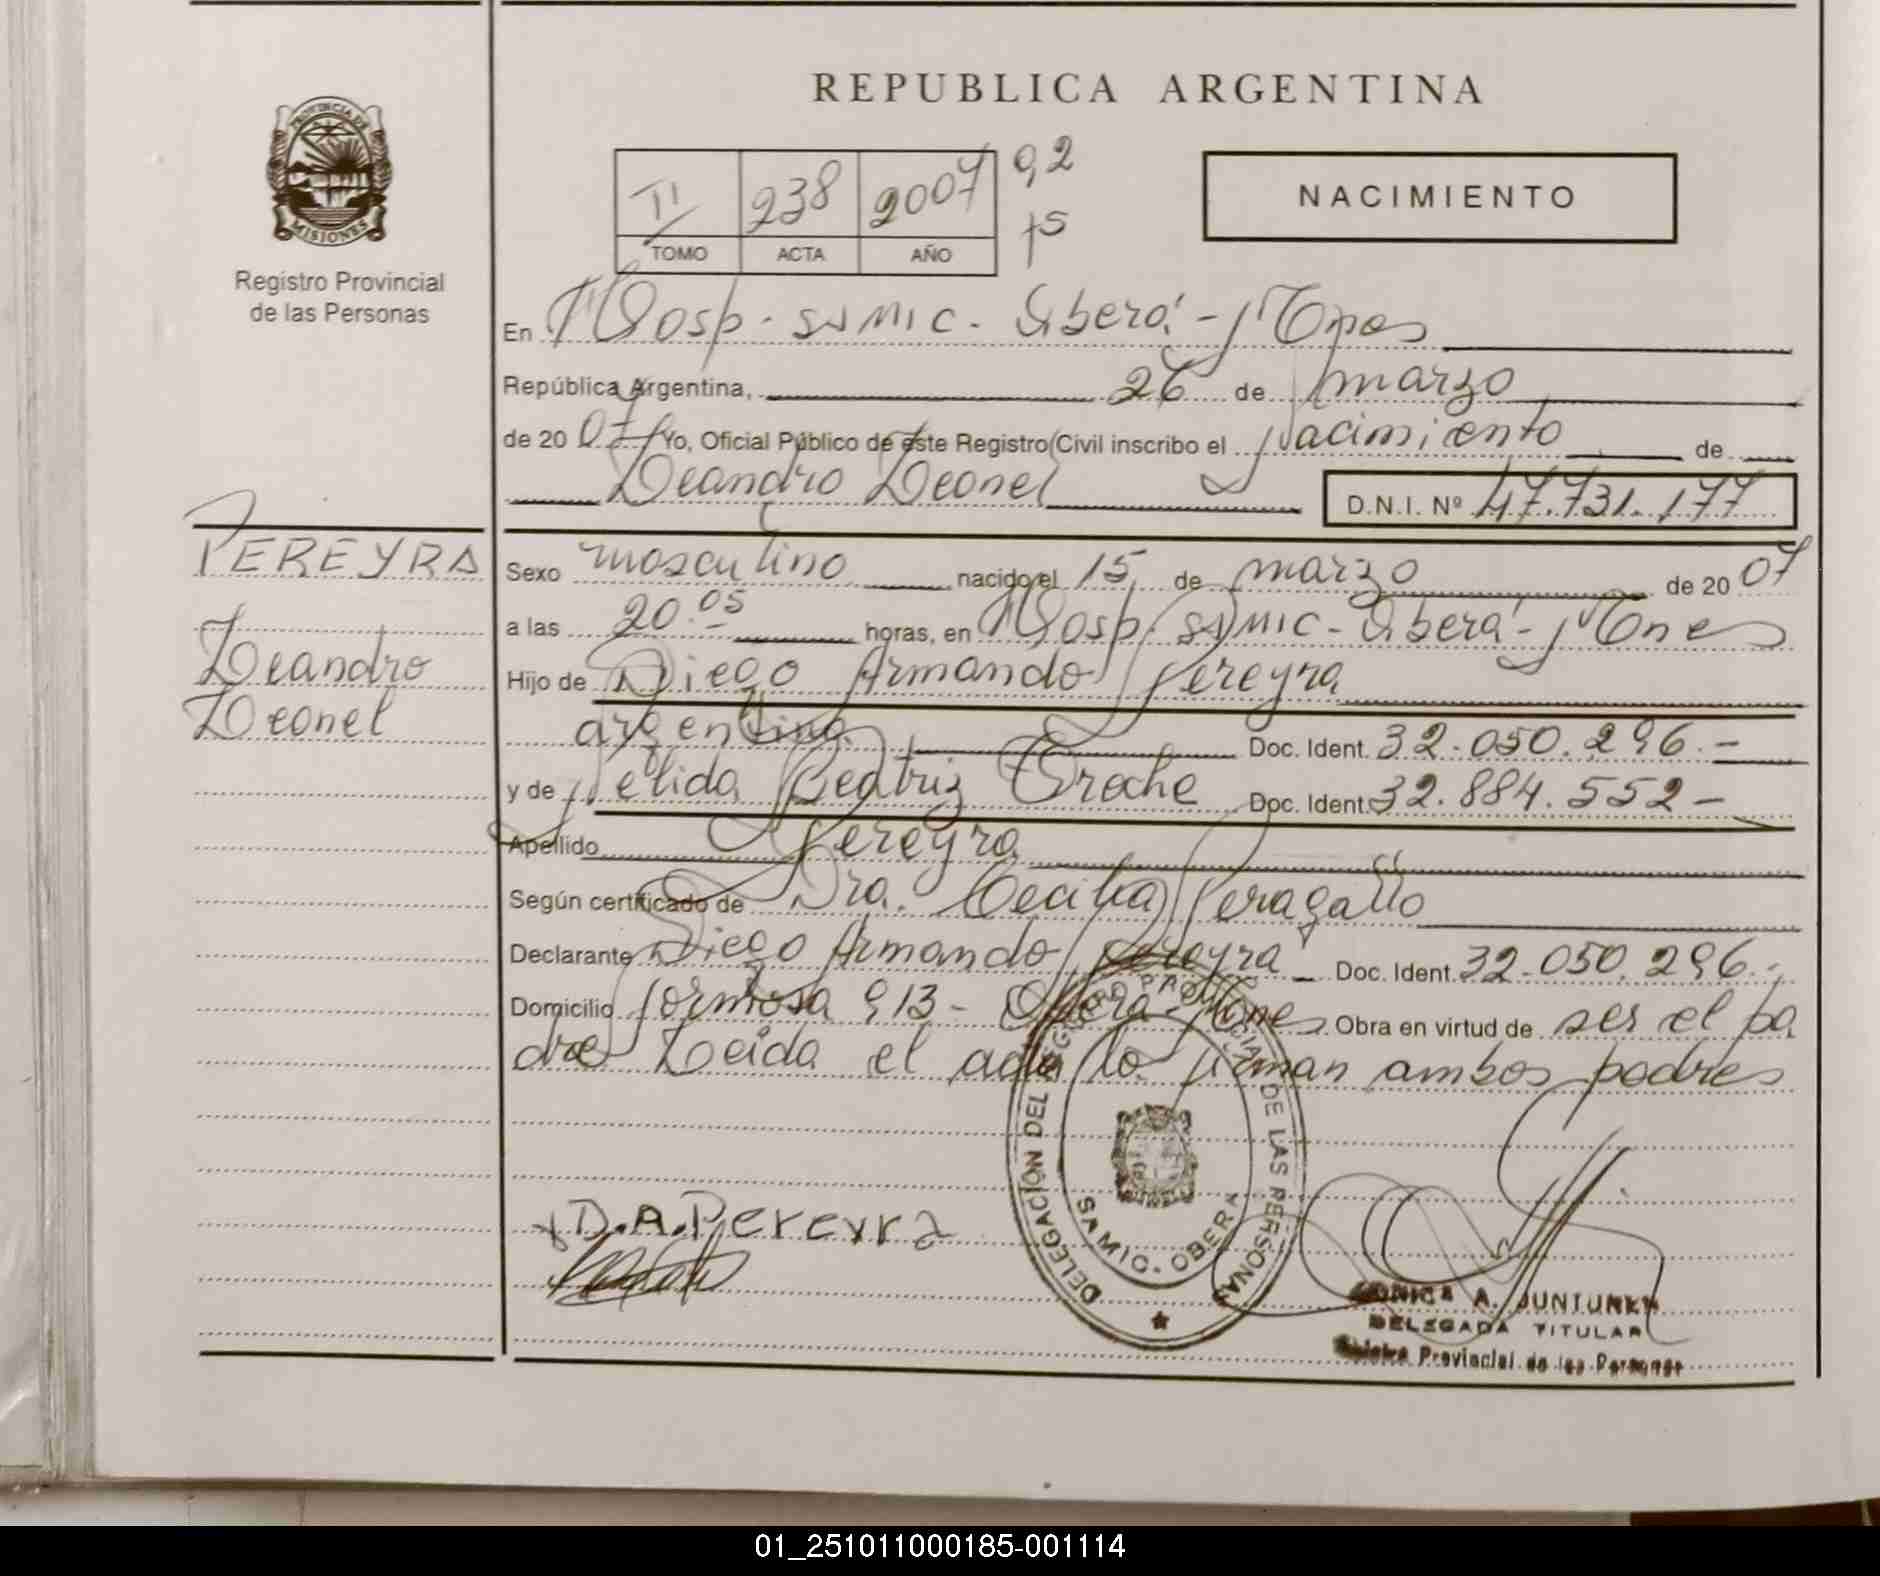 REPUBLICA ARGENTINA
PROVINCIA DE
MISIONES
Registro Provincial
de las Personas
II 238 2007 9,2
TOMO ACTA AÑO
NACIMIENTO
En Hosp. SAMIC. Oberá - Mnes
República Argentina, 26 de marzo
de 20 07 Yo, Oficial Público de este Registro Civil inscribo el Nacimiento de
Leandro Leonel D.N.I. Nº 47.731.177
PEREYRA
Leandro
Leonel
Sexo masculino nacido el 15 de marzo de 20 07
a las 20.05 horas, en Hosp. SAMIC - Oberá - Mnes
Hijo de Diego Armando Pereyra
argentino Doc. Ident. 32.050.296.-
y de Nélida Beatriz Doc. Ident. 32.884.552-
Apellido Pereyra
Según certificado de Dra. Cecilia Peragallo
Declarante Diego Armando Pereyra Doc. Ident. 32.050.296.-
Domicilio Formosa 913 - Oberá - Mnes Obra en virtud de ser el pa
dre Leida el acta la firman ambos padres
D.A.Pereyra
DELEGACION DEL REGISTRO PROVINCIAL DE LAS PERSONAS
SAMIC. OBERA
MONICA A. JUNTUNEN
DELEGADA TITULAR
Registro Provincial de las Personas
01_251011000185-001114